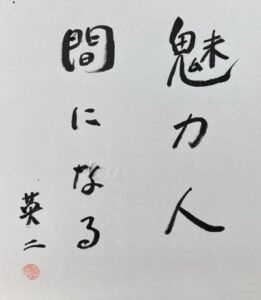 魅力人
間になる
英二